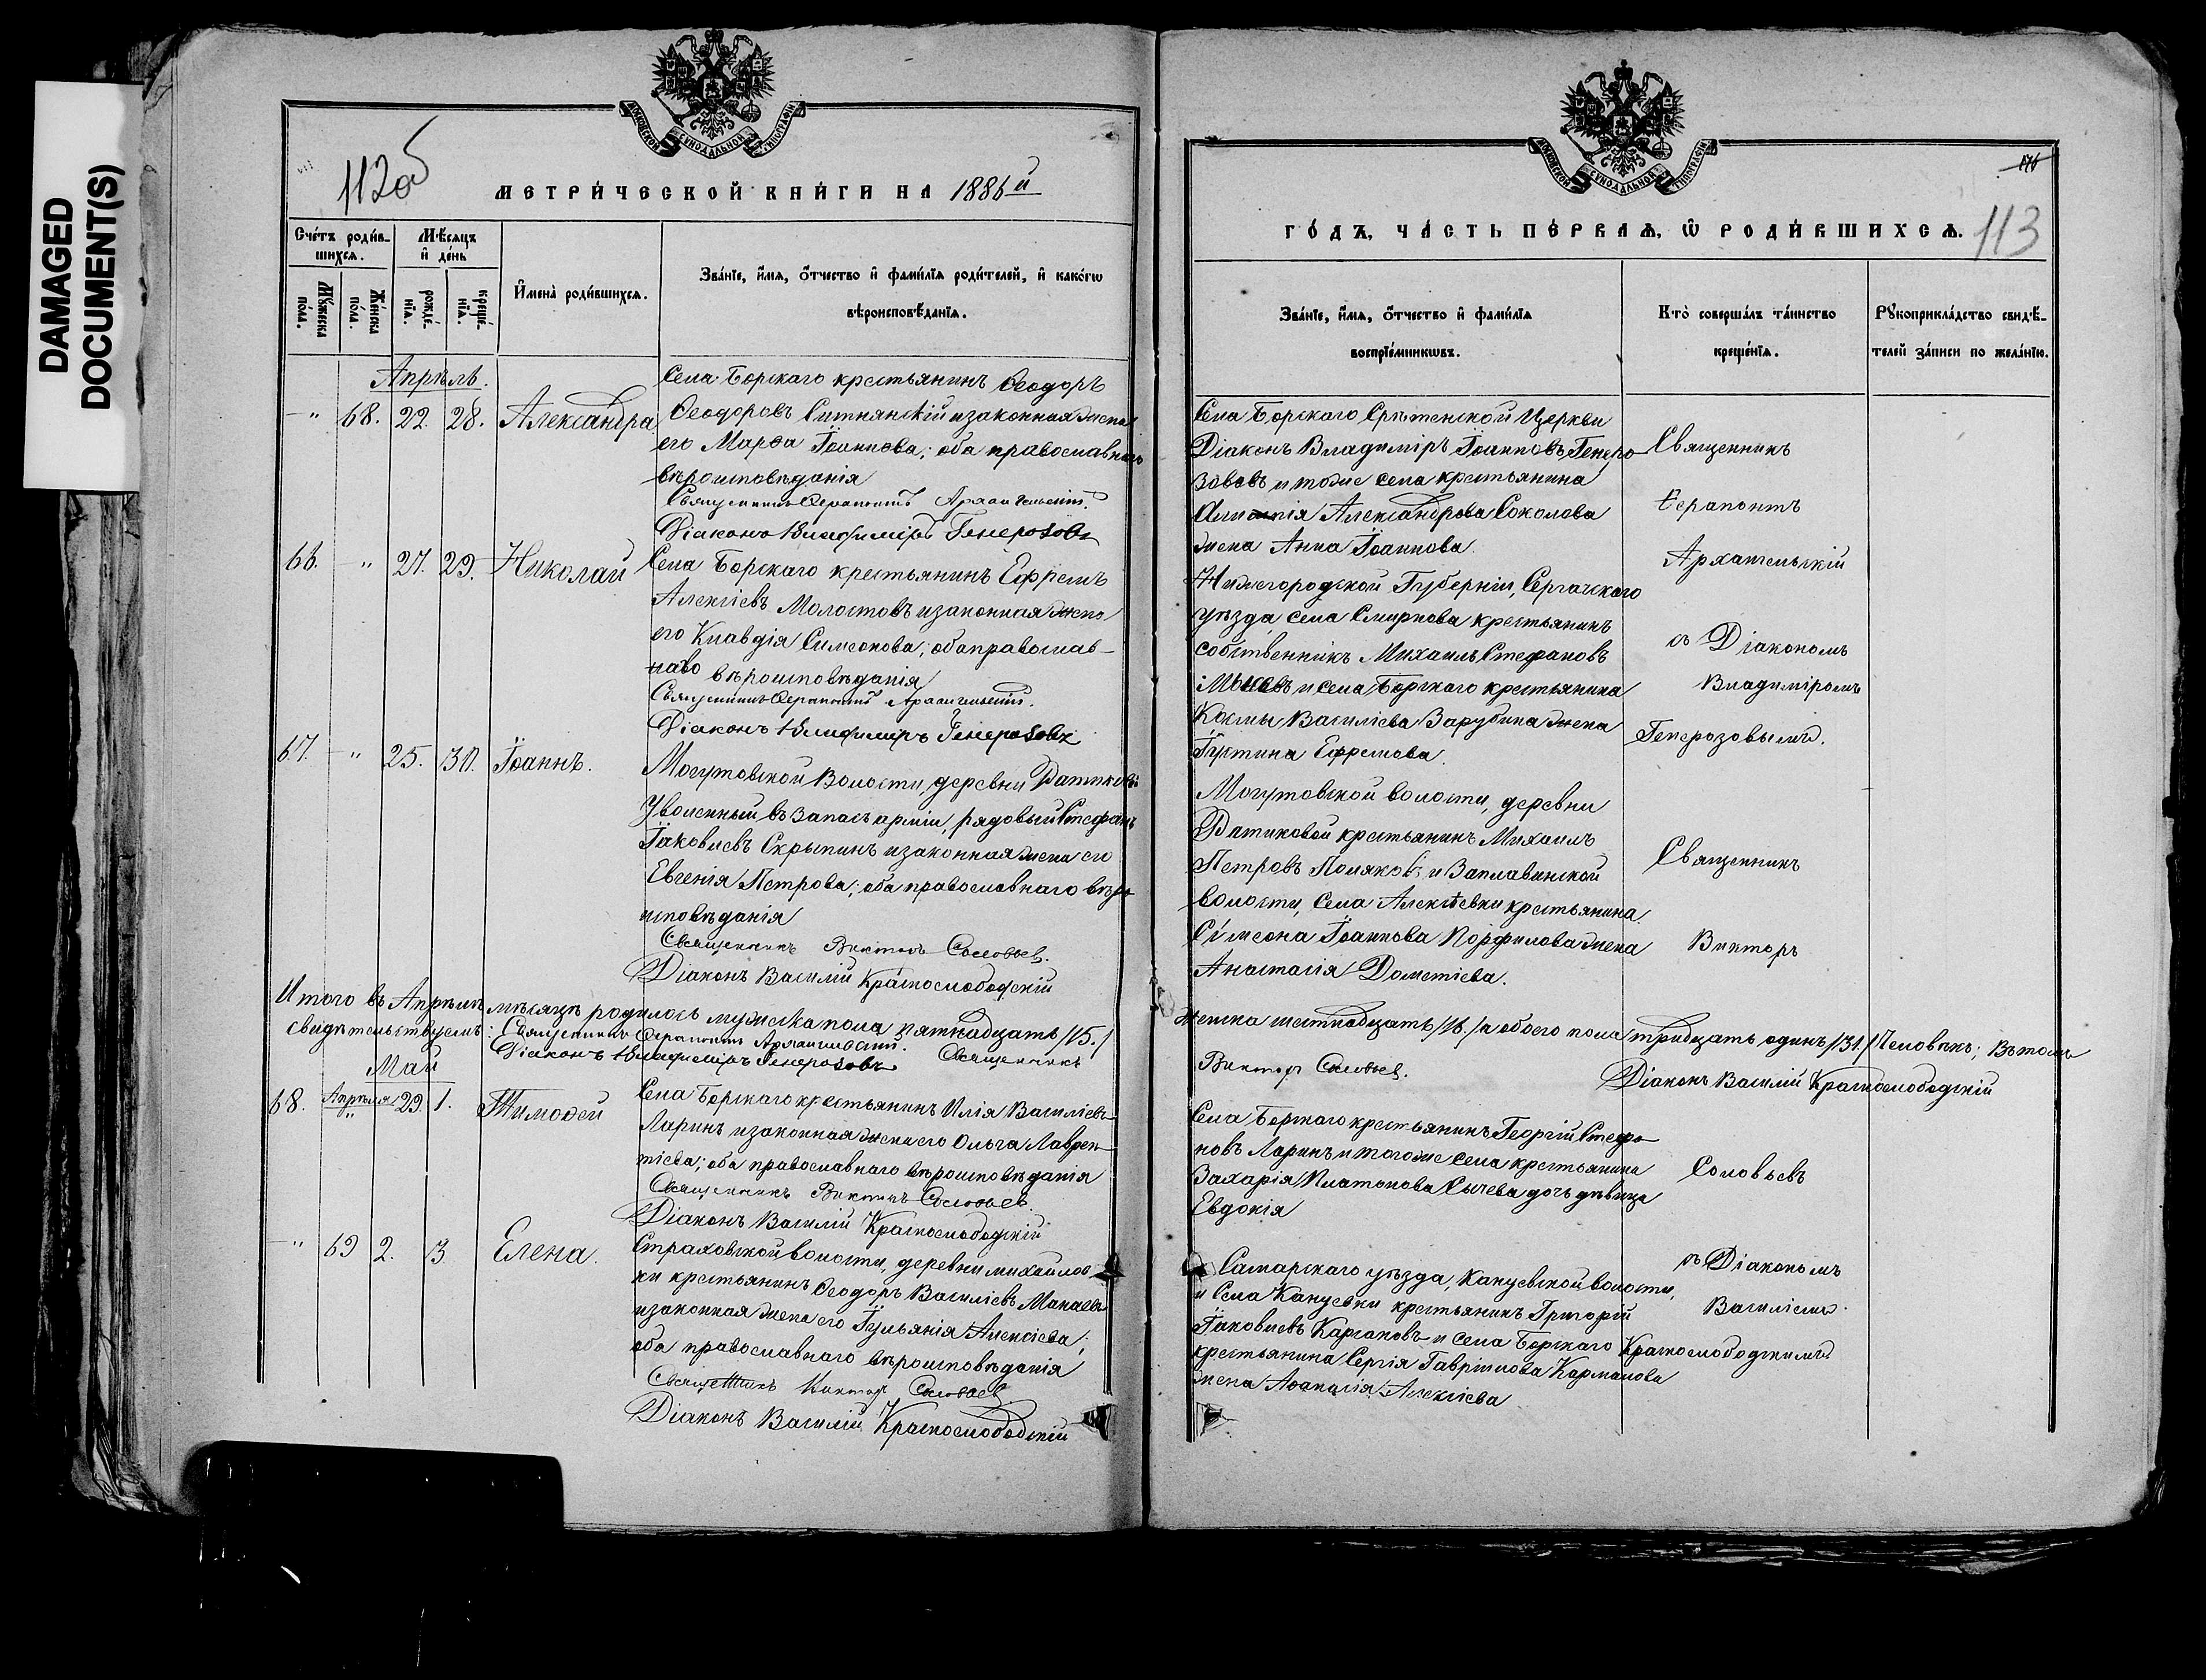 DAMAGED
DOCUMENT(S)
112об
МОСКОВСКОЙ СѴНОДАЛЬНОЙ ТИПОГРАФІИ
МЕТРИЧЕСКОЙ КНИГИ НА 1886й
Счетъ родив-
шихся.
Мѣсяцъ
и день
Мужеска
пола.
Женска
пола.
рожде-
нія.
креще-
нія.
Имена родившихся.
Званіе, имя, отчество и фамилія родителей, и какогω
вѣроисповѣданія.
Апрѣль.
Села Борскаго крестьянинъ Ѳеодоръ
— " 68. 22. 28. Александра Ѳеодоровъ Ситнянскій и законная жена
его Марѳа Іоаннова; оба православнаго
вѣроисповѣданія
Священникъ Серапонтъ Архангельскій.
Діаконъ Владиміръ Генерозовъ
66. — " 27. 29. Николай Села Борскаго крестьянинъ Ефремъ
Алексіевъ Молостовъ и законная жена
его Клавдія Симеонова; оба православ-
наго вѣроисповѣданія
Священникъ Серапонтъ Архангельскій.
Діаконъ Владиміръ Генерозовъ
67. — " 25. 30. Іоаннъ. Могутовской Волости, деревни
Уволенный въ Запасъ арміи, рядовый Стефанъ
Іаковлевъ Скрыпинъ и законная жена его
Евгенія Петрова; оба православнаго вѣро
исповѣданія
Священникъ Викторъ Соловьев.
Діаконъ Василій Краснослободскій
Итого въ Апрѣлѣ мѣсяцѣ родилось мужеска пола пятнадцать /15./
свидѣтельствуемъ: Священникъ Серапонтъ Архангельскій.
Діаконъ Владиміръ Генерозовъ Священникъ
Май
68. Апрѣля 29. 1. Тимоѳей Села Борскаго крестьянинъ Илія Василіевъ
Ларинъ и законная жена его Ольга Лаврен-
тіева; оба православнаго вѣроисповѣданія
Священникъ Викторъ Соловьев.
Діаконъ Василій Краснослободскій
— " 69 2. 3 Елена. Страховской волости, деревни Михайлов-
ки крестьянинъ Ѳеодоръ Василіевъ Манаевъ
и законная жена его Іульянія Алексіева;
оба православнаго вѣроисповѣданія
Священникъ Викторъ Соловьев
Діаконъ Василій Краснослободскій
МОСКОВСКОЙ СѴНОДАЛЬНОЙ ТИПОГРАФІИ
ГОДЪ, ЧАСТЬ ПЕРВАЯ, Ѡ РОДИВШИХСЯ. 113
Званіе, имя, отчество и фамилія
воспріемникωвъ.
Кто совершалъ таинство
крещенія.
Рукоприкладство свидѣ-
телей записи по желанію.
Села Борскаго Срѣтенской Церкви
Діаконъ Владиміръ Іоанновъ Генеро
зовъ и тогоже села крестьянина
Александрова Соколова
жена Анна Іоаннова.
Нижегородской Губерніи, Сергачскаго
уѣзда, села Смирнова крестьянинъ
собственникъ Михаилъ Стефановъ
и села Борскаго крестьянина
Космы Василіева Зарубина жена
Іустина Ефремова.
Священникъ
Серапонтъ
Архангельскій
съ Діакономъ
Владиміромъ
Генерозовымъ.
Могутовской волости, деревни
крестьянинъ Михаилъ
Петровъ Поляковъ и Заплавинской
волости, Села Алексѣевки крестьянина
Симеона Іоаннова Порфилова жена
Анастасія Дометіева.
Священникъ
Викторъ
женска шестнадцать /16./ а обоего пола тридцать одинъ /31./ Человѣкъ; Въ томъ
Викторъ Соловьев. Діаконъ Василій Краснослободскій
Села Борскаго крестьянинъ Георгій Стефа
новъ Ларинъ и тогоже села крестьянина
Захарія Платонова Сычева дочь дѣвица
Евдокія
Соловьевъ
съ Діакономъ
Василіемъ
Краснослободскимъ
Самарскаго уѣзда, Кануевской волости,
и Села Кануевки крестьянинъ Григорій
Іаковлевъ Каргаковъ и Села Борскаго
крестьянина Сергія Гавріилова Карманова
жена Аѳанасія Алексіева